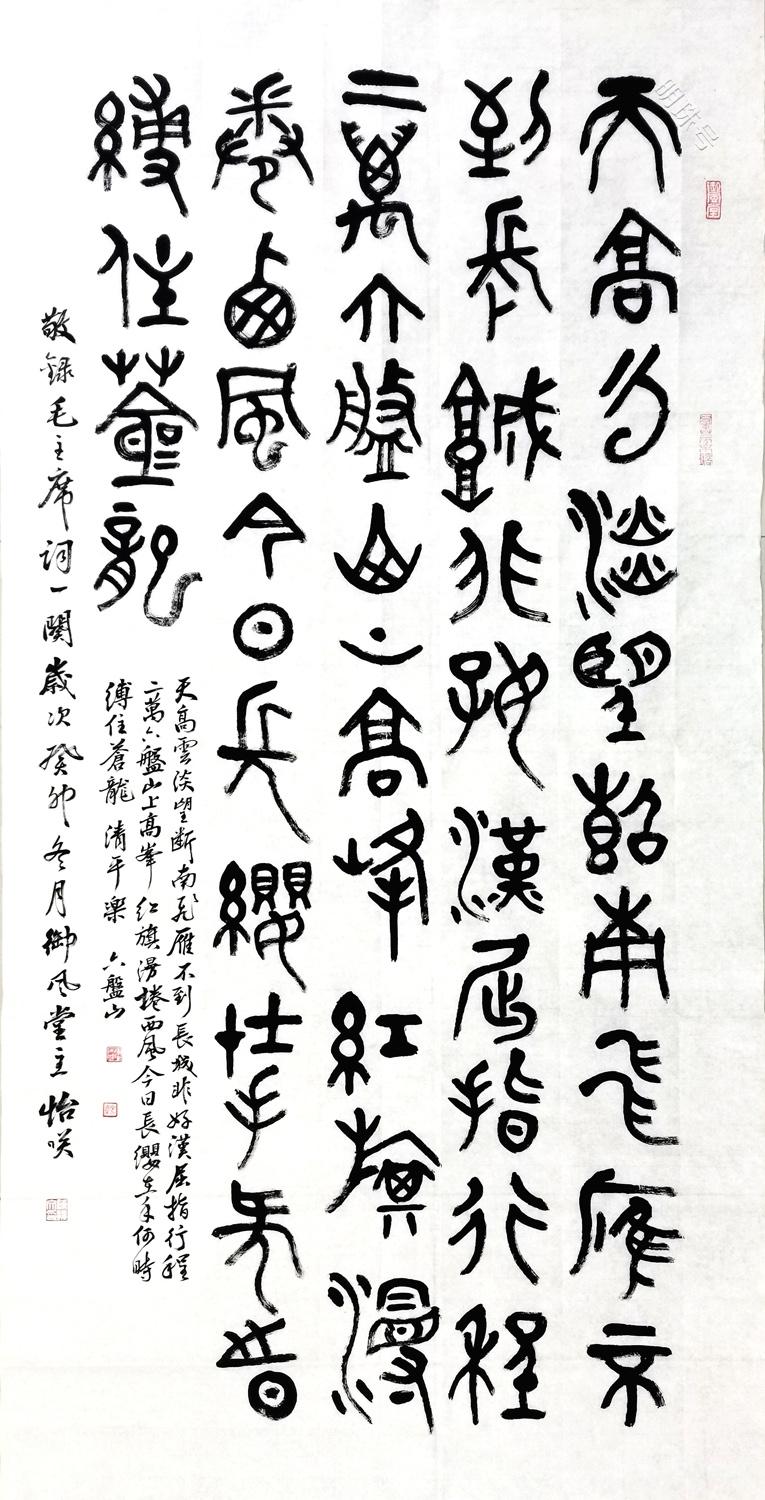 天高云淡望斷南飛雁不
到長城非好漢屈指行程
二萬六盤山上高峰紅旗漫
卷西風今日長纓在手何時
縛住蒼龍
天高雲淡望断南飛雁不到長城非好漢屈指行程
二萬六盤山上高峯紅旗漫捲西風今日長纓在手何時
縛住蒼龍 清平樂 六盤山
敬録毛主席詞一闋歲次癸卯冬月御風堂主怡咲
明珠号